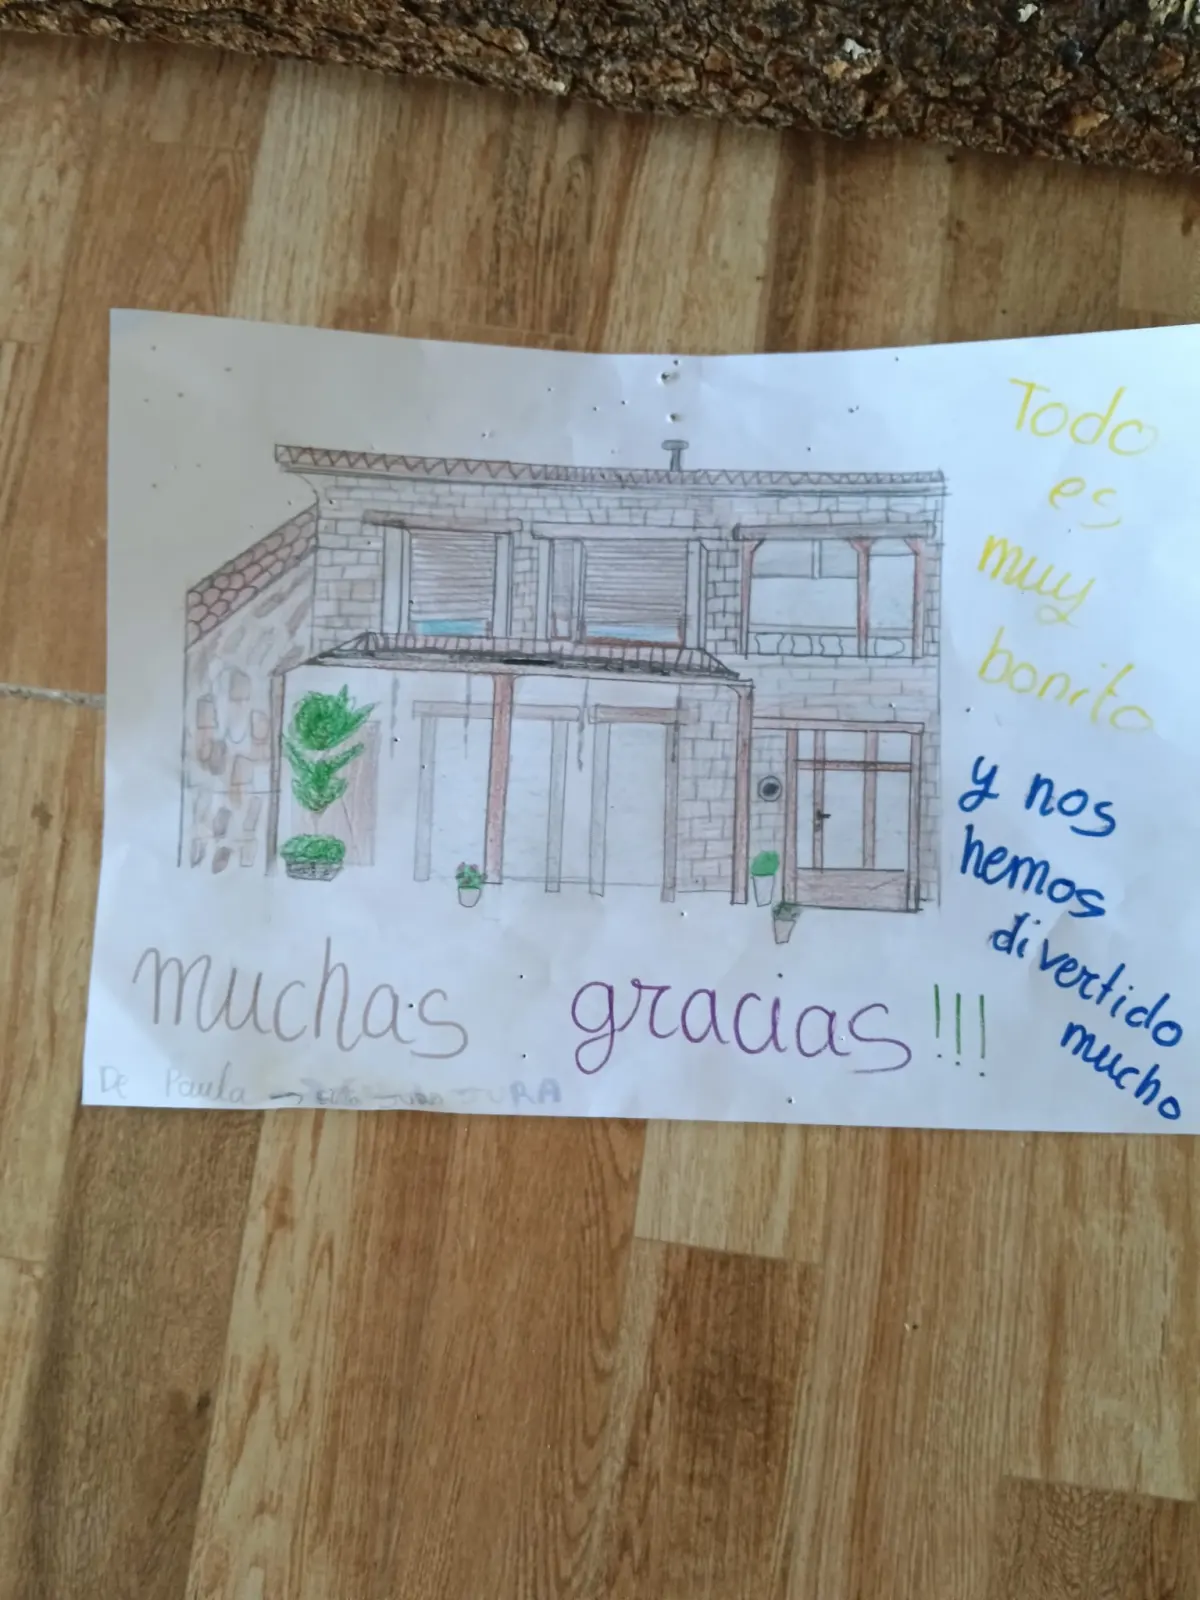 Todo
es
muy
bonito
y nos
hemos
divertido
mucho
muchas gracias!!!
De Paula →